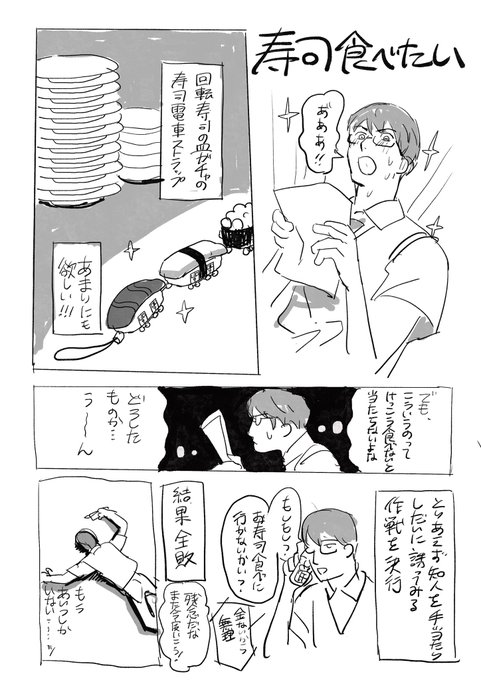 寿司食べたい
おおお!!
回転寿司の皿ガチャの
寿司電車ストラップ
あまりにも
欲しい!!!
でも、
こういうのって
けっこう食べないと
当たらないよな
どうした
ものか…
う～～ん
とりあえず知人を手当たり
しだいに誘ってみる
作戦を決行
もしもしっ?
お寿司食べに
行かないかい?
金ないから
無理
残念だな
また今度いこう!
結果全敗
もう
あいつしか
いない…!